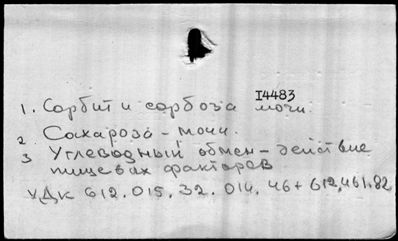 I4483
1. Сорбит и сорбоза мочи.
2. Сахароза - мочи.
3 Углеводный обмен - действие
пищевых факторов
УДК 612.015.32.014.46+612.461.82